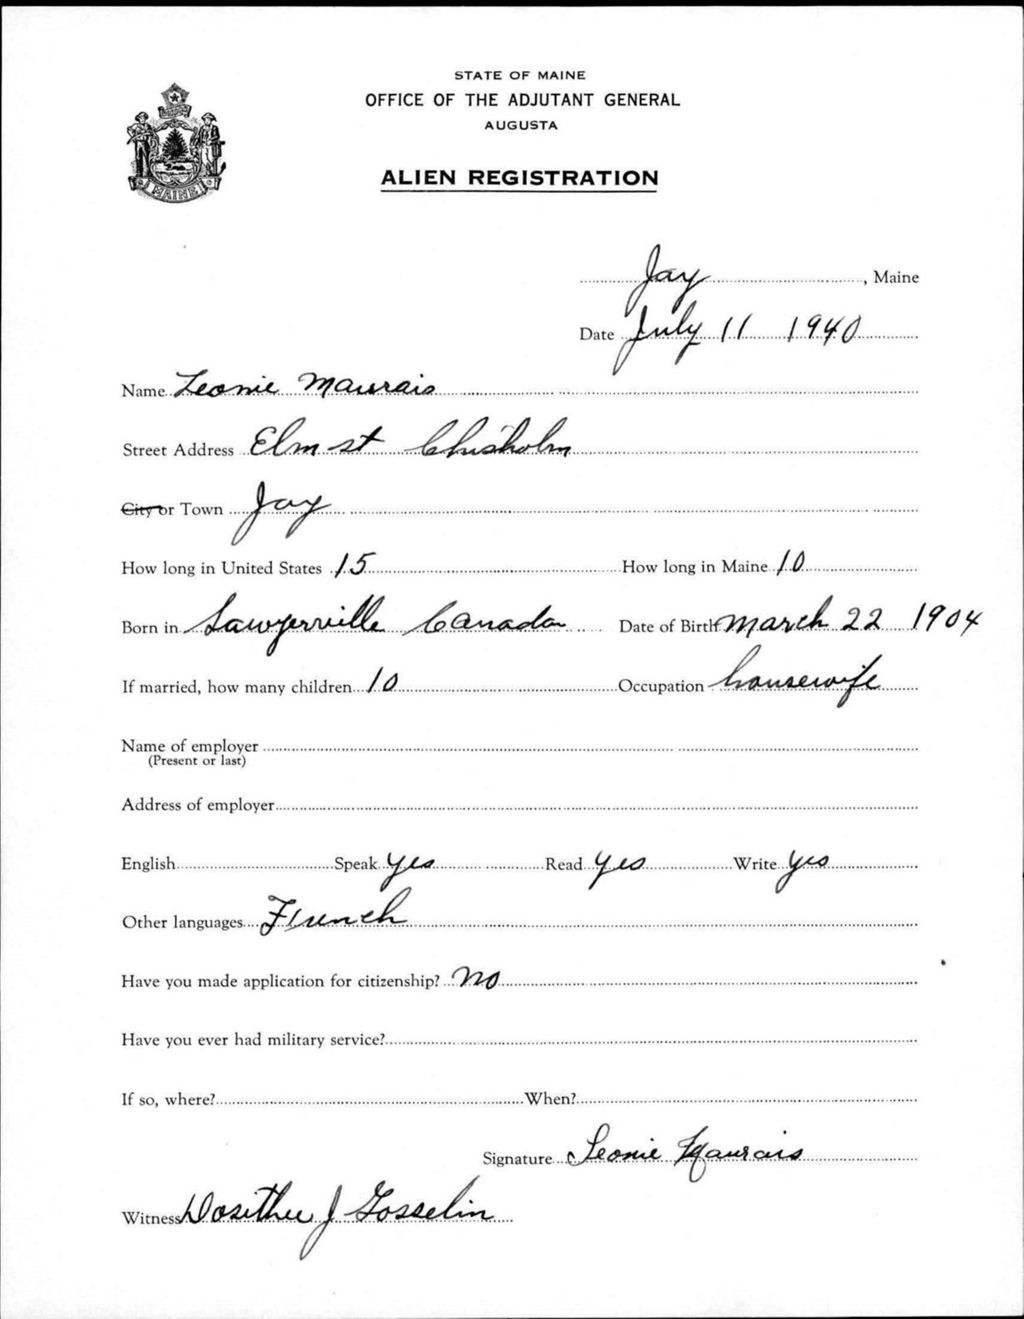 STATE OF MAINE
OFFICE OF THE ADJUTANT GENERAL
AUGUSTA
ALIEN REGISTRATION
MAINE
Jay, Maine
Date July 11 1940
Name Leonie Maurais
Street Address Elm st Chisholm
City or Town Jay
How long in United States 15 How long in Maine 10
Born in Sawyerville Canada Date of Birth March 22 1904
If married, how many children 10 Occupation housewife
Name of employer
(Present or last)
Address of employer
English Speak yes Read yes Write yes
Other languages French
Have you made application for citizenship? No
Have you ever had military service?
If so, where? When?
Signature Leonie Maurais
Witness Dosithee J Gosselin